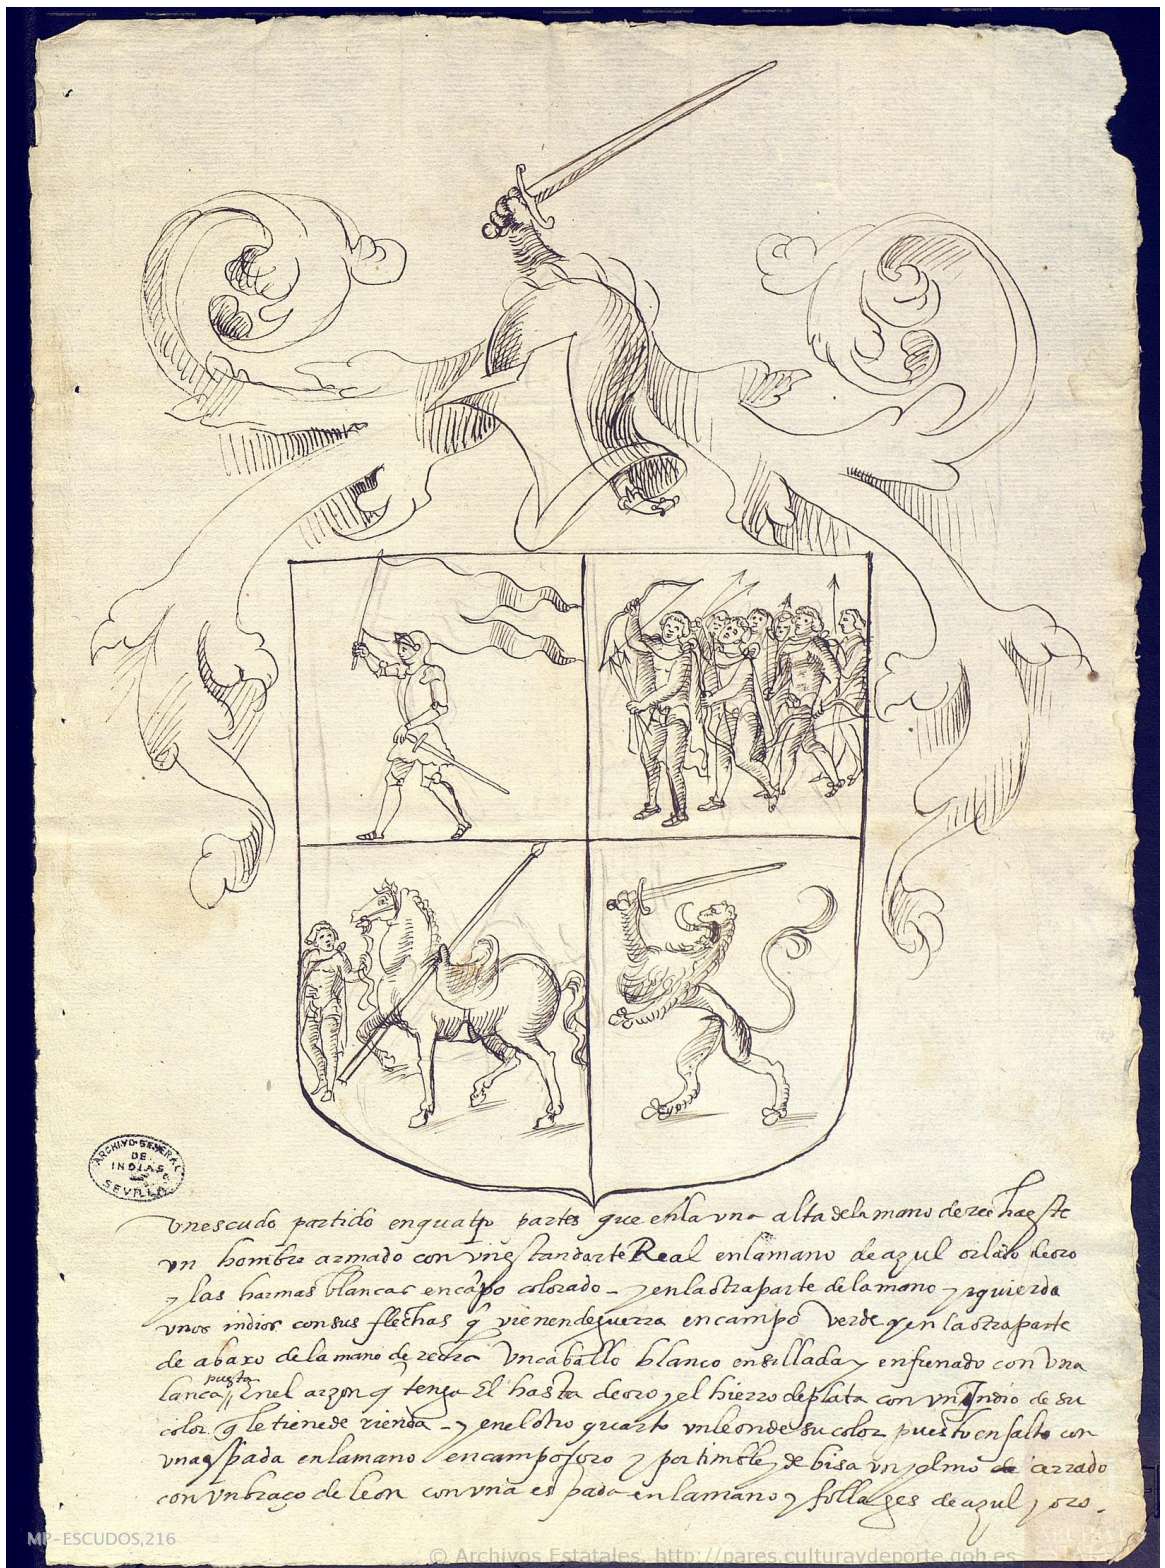 ARCHIVO GENERAL
DE
INDIAS
SEVILLA
vn escudo partido en quatro partes que en la vna alta de la mano derecha este
vn hombre armado con vn estandarte Real en la mano de azul orlado de oro
y las harmas blancas en canpo colorado - y en la otra parte de la mano yzquierda
vnos indios con sus flechas q vienen de guerra en campo verde y en la otra parte
de abaxo de la mano derecha vn caballo blanco ensillado y enfrenado con vna
lança puesta en el arzon q tenga el hasta de oro y el hierro de plata con vn Indio de su
color q le tiene de rienda - y en el otro quarto vn leon de su color puesto en salto con
vna espada en la mano en campo de oro y por timble y debisa vn yelmo cerrado
con vn braço de leon con vna espada en la mano y follages de azul y oro.
MP-ESCUDOS,216
© Archivos Estatales, http://pares.culturaydeporte.gob.es